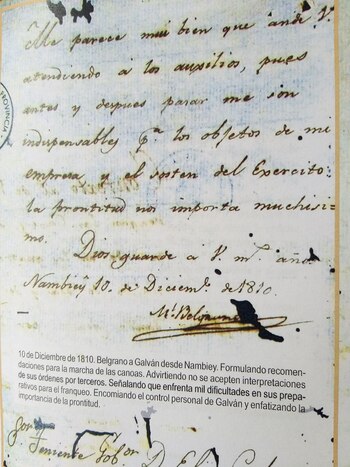 Me parece mui bien que ande V.
atendiendo á los auxilios, pues
antes y despues pasar me son
indispensables pa. los objetos de mi
empresa y el sosten del Exercito:
la prontitud nos importa muchisi-
mo.
Dios guarde á V. ms. años
Nambiỹ 10. de Diciembe. de 1810.
Ml. Belgrano
10 de Diciembre de 1810. Belgrano a Galván desde Nambiey. Formulando recomen-
daciones para la marcha de las canoas. Advirtiendo no se acepten interpretaciones
de sus órdenes por terceros. Señalando que enfrenta mil dificultades en sus prepa-
rativos para el franqueo. Encomiando el control personal de Galván y enfatizando la
importancia de la prontitud.
Sor. Teniente Gobor
PROVINCIA